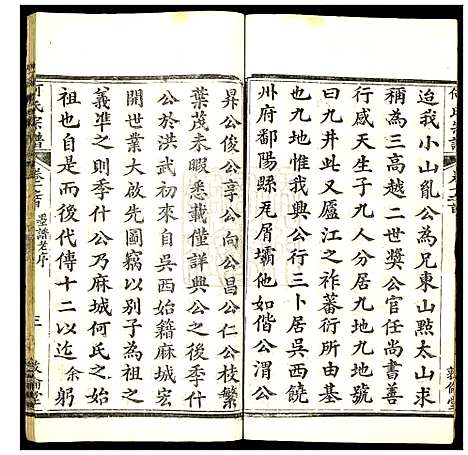 迨我小山亂公為兄東山點太山求
稱為三高越二世獎公官任尚書善
行感天生子九人分居九地九地號
曰九井此又廬江之祚蕃衍所由基
也惟我興公行三卜居吳西饒
州府鄱陽縣瓦屑壩他如偕公渭公
昇公俊公享公向公昌公仁公枝繁
葉茂未暇悉載僅詳典公之後季什
公於洪武初自吳西始籍麻城
開世業大啟先圖竊以別子為祖之
義準之則季什公乃麻城何氏之始
祖也而後代傳十二以迄余躬
何氏宗譜
卷之首
墨譜老序
三
敦倫堂